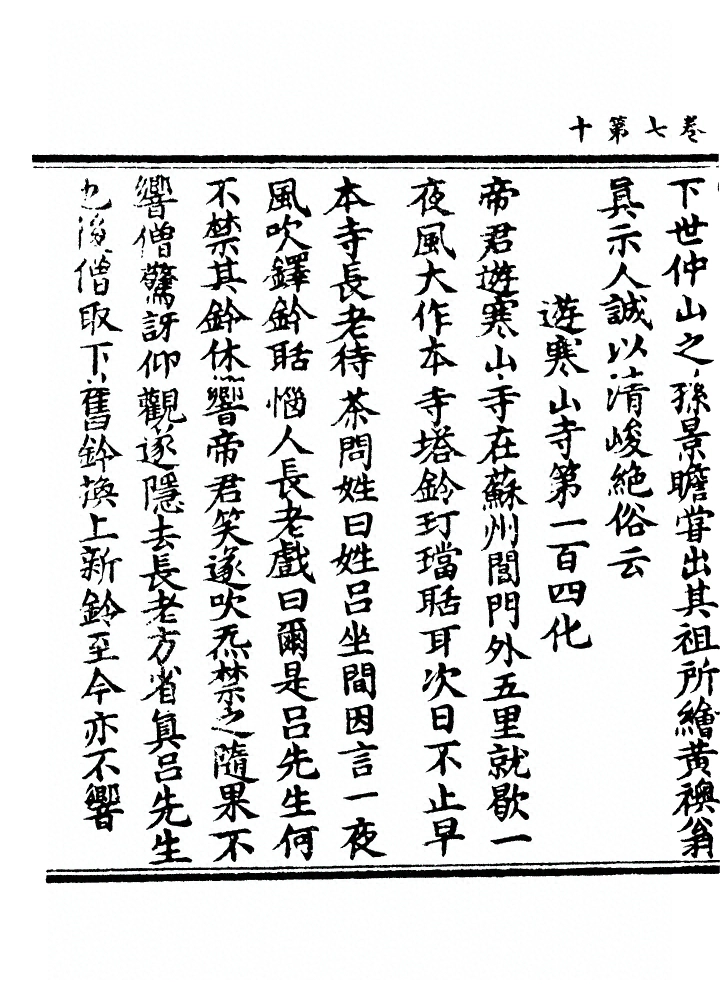 卷七第十
下世仲山之孫景瞻嘗出其祖所繪黃襖翁
眞示人誠以清峻絶俗云
遊寒山寺第一百四化
帝君遊寒山寺在蘇州閶門外五里就歇一
夜風大作本寺塔鈴玎璫聒耳次日不止早
本寺長老待茶問姓曰姓呂坐間因言一夜
風吹鐸鈴聒惱人長老戲曰爾是呂先生何
不禁其鈴休響帝君笑遂吹炁禁之隨果不
響僧驚訝仰觀遂隱去長老方省眞呂先生
也後僧取下舊鈴換上新鈴至今亦不響